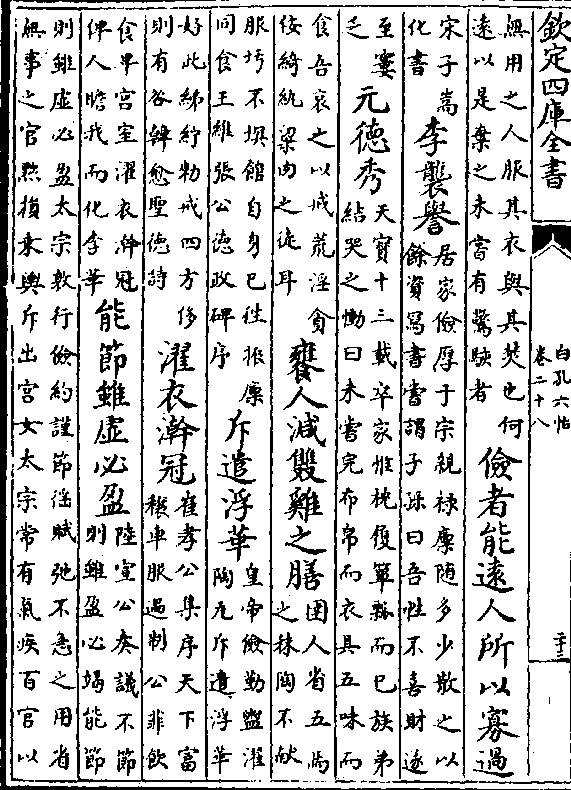 欽定四庫全書
白孔六帖
卷二十八
無用之人服其衣與其焚也何
遠以是棄之未嘗有驚駭者
儉者能遠人所以寡過
宋子嵩
化書
李襲譽
居家儉厚于宗親禄廩随多少散之以
餘資寫書嘗謂子孫曰吾性不喜財遂
至窶
乏
元德秀
天寶十三載卒家惟枕履簞瓢而已族弟
結哭之慟曰未嘗完布帛而衣具五味而
食吾哀之以戒荒淫貪
佞綺紈梁肉之徒耳
饔人減雙雞之膳
圉人省五馬
之秣陶不献
服圬不塓館自身已往振廉
同食王維張公德政碑序
斥遣浮華
皇帝儉勤盥濯
陶凡斥遣浮華
好此綈紵勑戒四方侈
則有咎韓愈聖德詩
濯衣澣冠
崔孝公集序天下富
穰車服過制公菲飲
食卑宫室濯衣澣冠
俾人瞻我而化李華
能節雖虚必盈
陸宣公奏議不節
則雖盈必竭能節
則雖虚必盈太宗敦行儉約謹節徭賦弛不急之用省
無事之官黜損乘輿斥出宫女太宗常有氣疾百官以